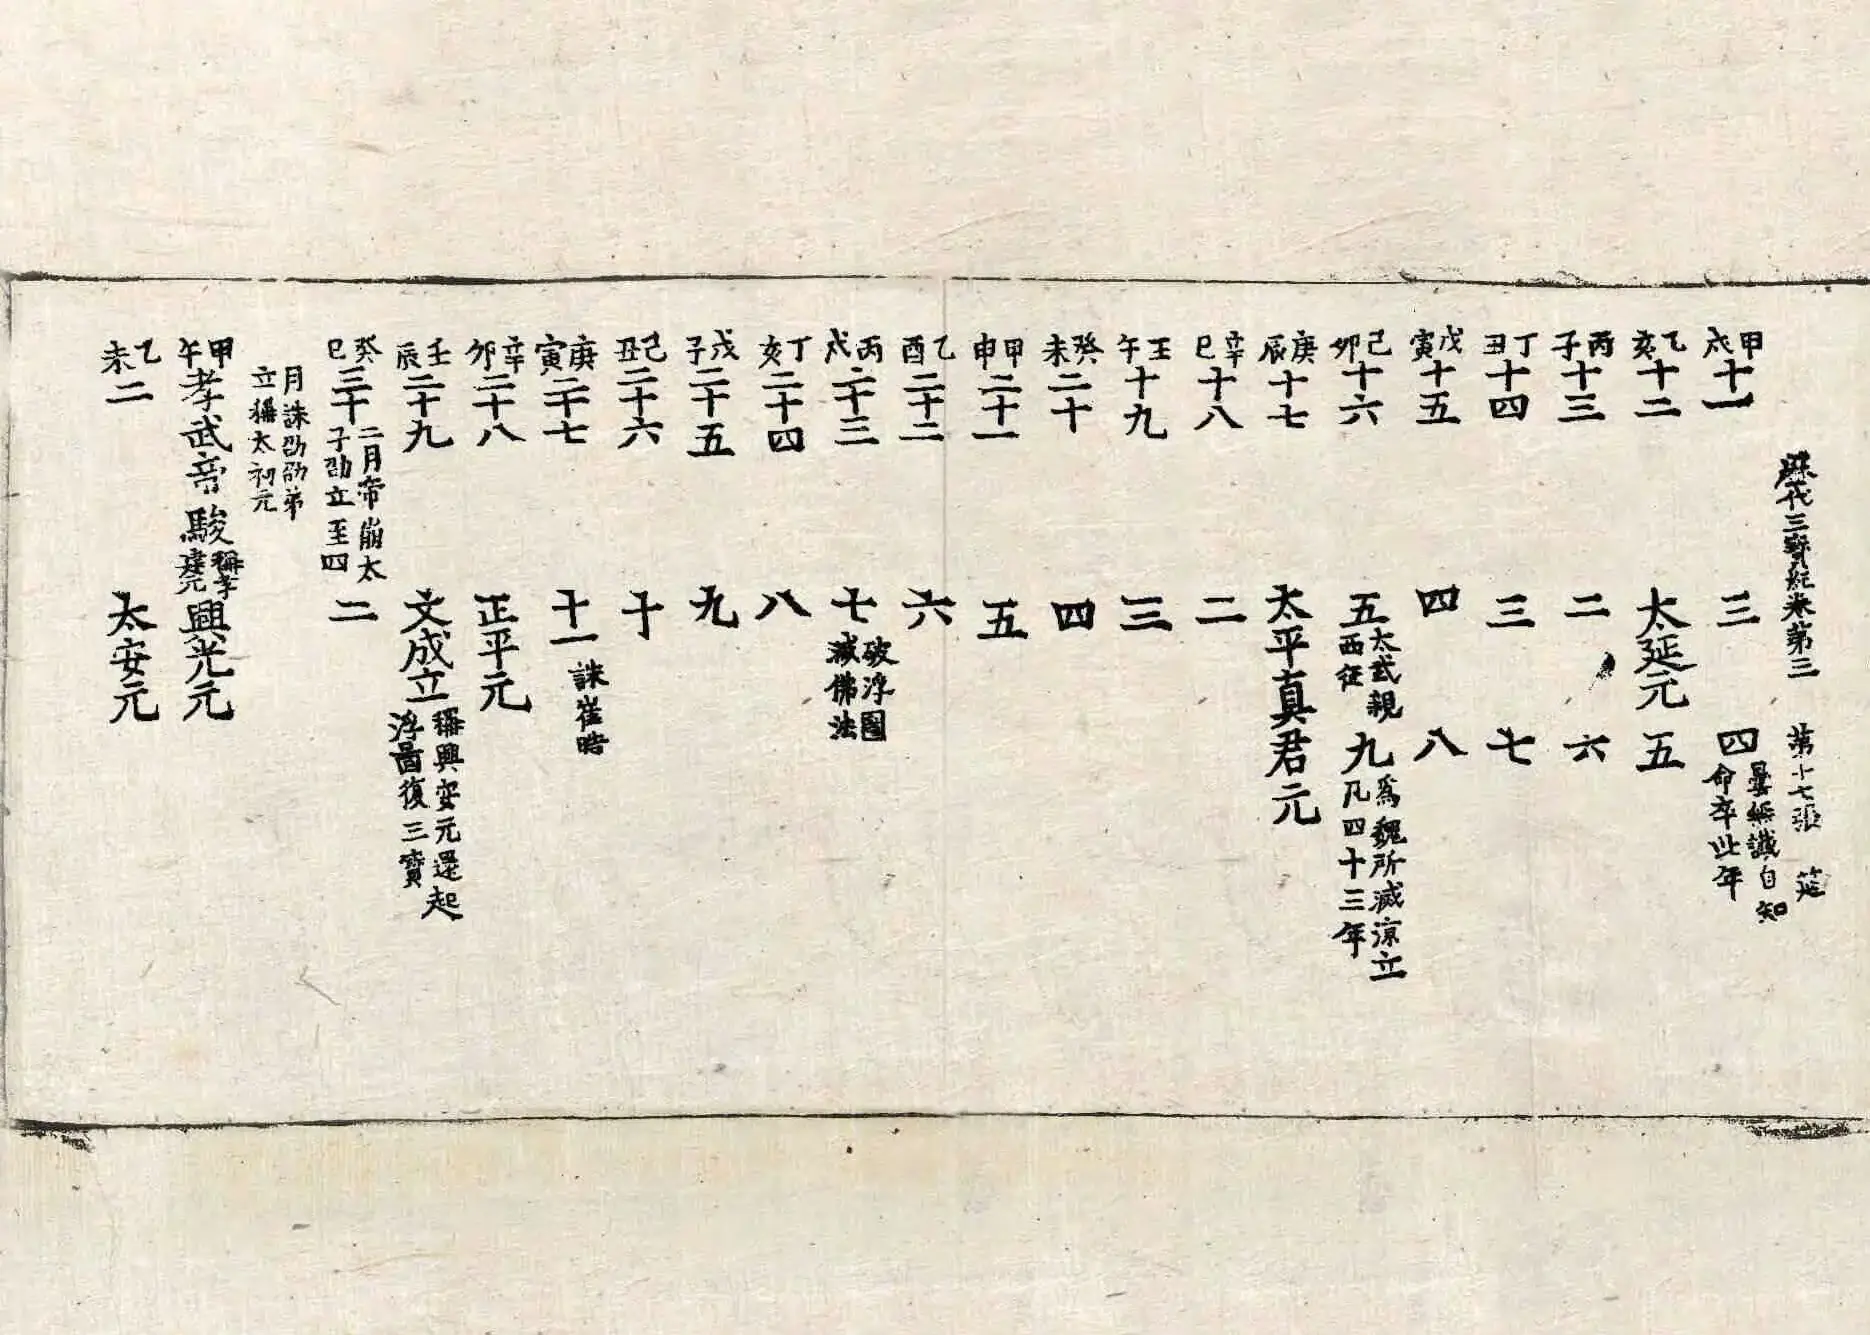 歷代三寶紀卷第三 第十七張 筵
甲戌 十一 三 四 曇無讖自知命卒此年
乙亥 十二 太延元 五
丙子 十三 二 六
丁丑 十四 三 七
戊寅 十五 四 八
己卯 十六 五 太武親西征 九 爲魏所滅涼立凡四十三年
庚辰 十七 太平真君元
辛巳 十八 二
壬午 十九 三
癸未 二十 四
甲申 二十一 五
乙酉 二十二 六
丙戌 二十三 七 破浮圖滅佛法
丁亥 二十四 八
戊子 二十五 九
己丑 二十六 十
庚寅 二十七 十一 誅崔晧
辛卯 二十八 正平元
壬辰 二十九 文成立 稱興安元還起浮啚復三寶
癸巳 三十 二月帝崩太子劭立至四 二
月誅劭劭弟立稱太初元
甲午 孝武帝駿 稱孝建元 興光元
乙未 二 太安元